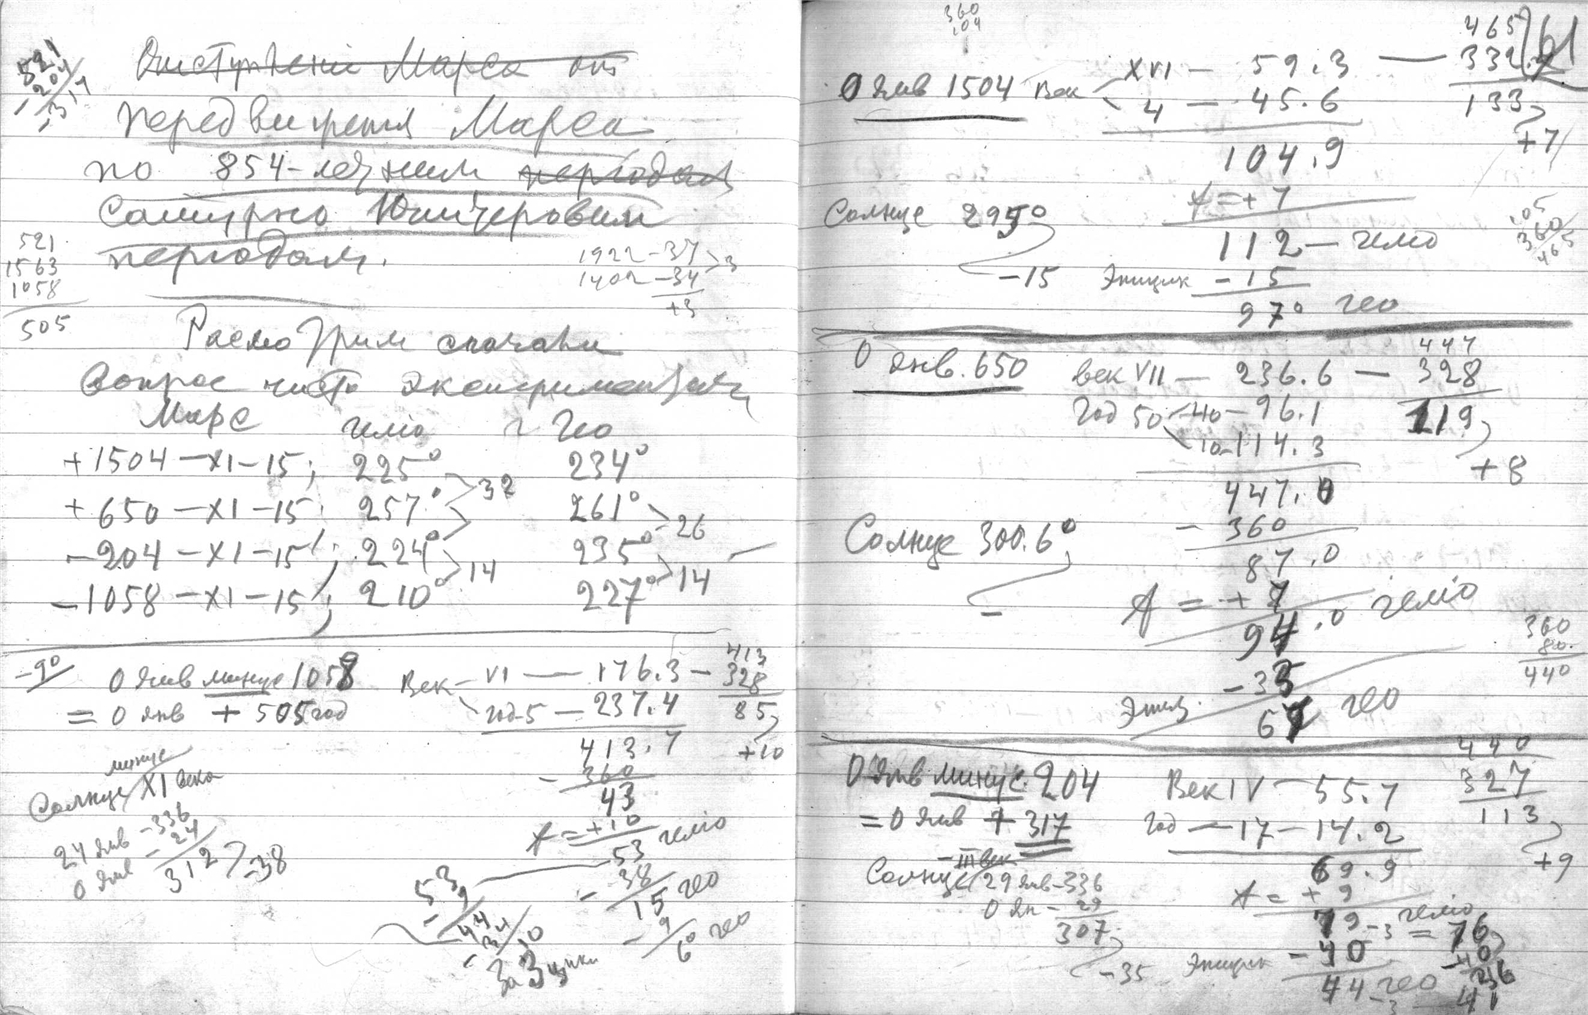 521
204
-317
Отступление Марса от
передвижения Марса
по 854-летним периодам
Сатурно Юпитеровым
периодам.
521
1563
1058
505
1922-37
1402-34
3
+3
Рассмотрим сначала
вопрос чисто экспериментально
Марс гелио Гео
+1504-XI-15; 225° 234°
32
+650-XI-15; 257° 261°
26
-204-XI-15; 224° 235°
14 14
-1058-XI-15; 210° 227°
-9°
0 янв минус 1058
= 0 янв + 505 год
Век VI — 176.3 -
год-5 — 237.4
413
328
85
+10
413.7
- 360
43
A = +10
53 гелио
- 38
15 гео
- 9
6° гео
минус
Солнце XI века
24 янв -336
0 янв - 24
312
-38
53
- 9
44
- 34
10
за 3 цикл
360
104
61
0 янв 1504 век
XVI — 59.3 —
4 — 45.6
104.9
465
332
133
+7
Солнце 295°
-15
A = +7
112 — гелио
Эпицик -15
97° гео
105
360
465
0 янв. 650
век VII — 236.6 —
год 50 40 - 96.1
10 - 114.3
447
328
119
+8
447.0
- 360
87.0
Солнце 300.6°
-
A = +7
94.0 гелио
-33
Эпиц. 61 гео
360
80
440
0 янв минус 204
= 0 янв + 317
Век IV — 55.7
год — 17 - 14.2
69.9
440
327
113
+9
- III век
Солнце 29 янв-336
0 ян - 29
307
-35
A = +9
79 -3 = 76
гелио
Эпицик -40
44 гео
-3 41